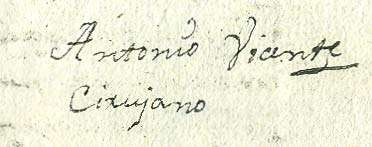 Antonio Vicente
Cirujano